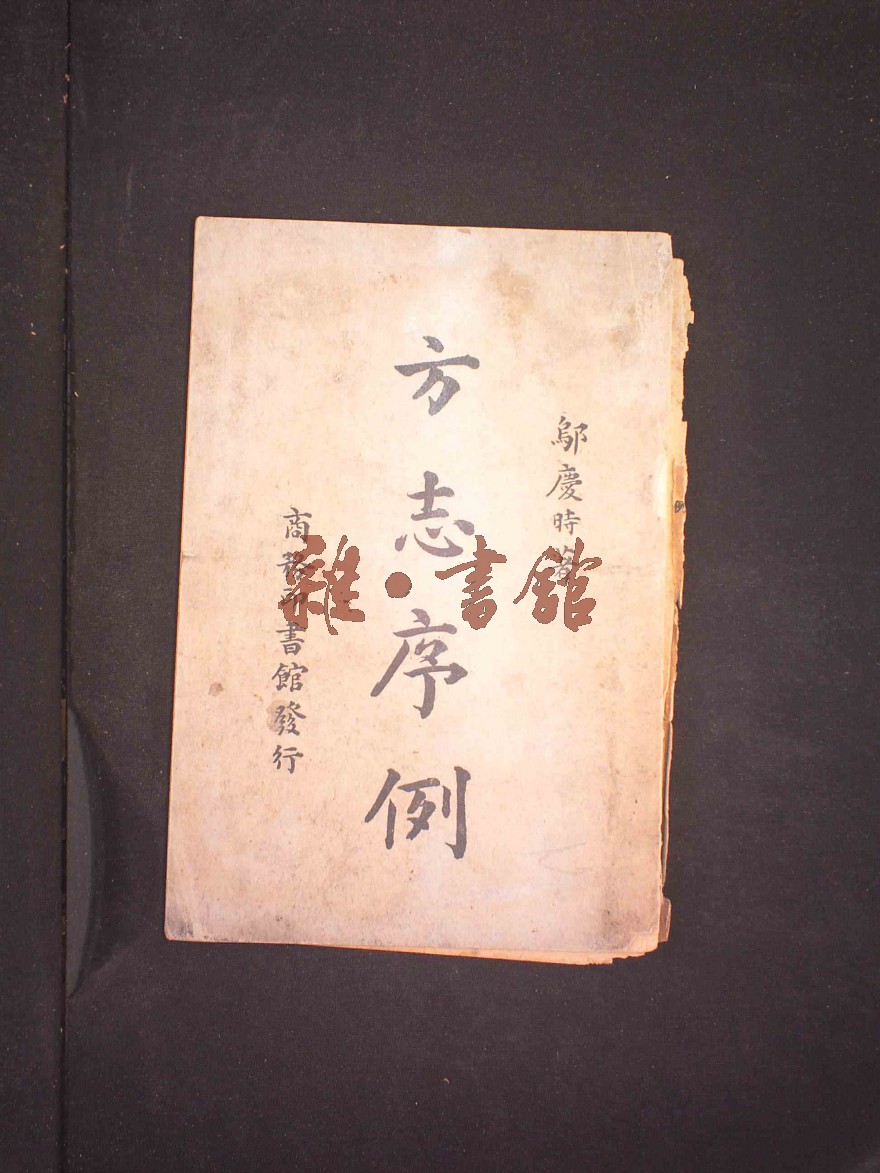 鄔慶時著
方志序例
商務印書館發行
雜·書館
例